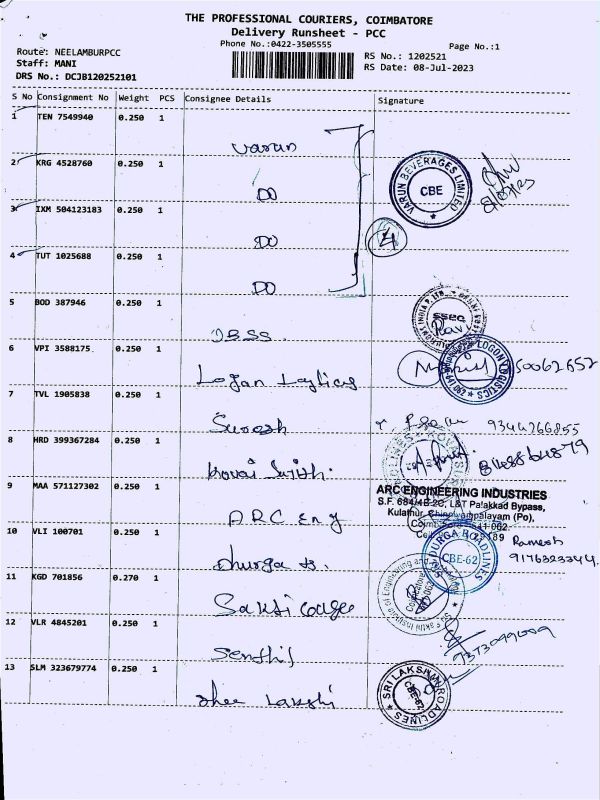 THE PROFESSIONAL COURIERS, COIMBATORE
Delivery Runsheet - PCC
Phone No.:0422-3505555
Page No.:1
Route: NEELAMBURPCC
Staff: MANI
DRS No.: DCJB120252101
RS No.: 1202521
RS Date: 08-Jul-2023
S No Consignment No Weight PCS Consignee Details Signature
1 TEN 7549940 0.250 1
Varun
2 KRG 4528760 0.250 1
DO
VARUN BEVERAGES LIMITED
CBE
3 IXM 504123183 0.250 1
DO
4
4 TUT 1025688 0.250 1
DO
5 BOD 387946 0.250 1
SSEC
Ravi
6 VPI 3588175 0.250 1
Logan Logticus
LOGON LOGISTICS
7 TVL 1905838 0.250 1
Suresh
9344266855
8 HRD 399367284 0.250 1
Kovai
9 MAA 571127302 0.250 1
ARC Eng
ARC ENGINEERING INDUSTRIES
S.F. 684/4B-2C, L&T Palakkad Bypass,
10 VLI 100701 0.250 1
Dhurga
DURGA ROADLINES
CBE-62
Ramesh
9176323344
11 KGD 701856 0.270 1
Sakti
12 VLR 4845201 0.250 1
Senthil
13 SLM 323679774 0.250 1
Shee Lakshi
SRI LAKSHMI ROADLINES
CBE-62